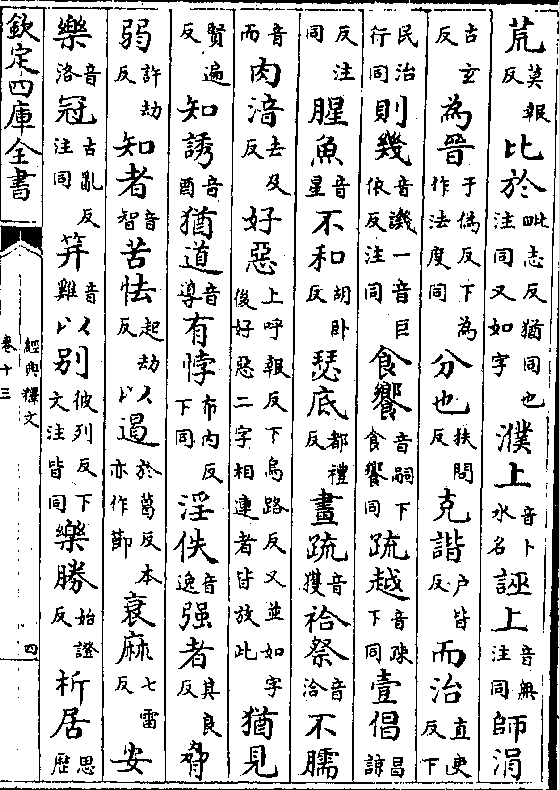 荒莫報反比於毗志反猶同也注同又如字濮上音卜水名誣上音無注同師涓
古玄反為晉于偽反下為作法度同分也扶問反克諧戶皆反而治直吏反下
民治行同則幾音譏一音巨依反注同食饗音嗣下食饗同疏越音疎下同壹倡昌諒
反注同腥魚音星不和胡卧反瑟底都禮反畫疏音獲祫祭音洽不臑
音而肉湆去及反好惡上呼報反下烏路反又並如字後好惡二字相連者皆放此猶見
賢遍反知誘音酉猶道音導有悖布内反下同淫佚音逸强者其良反脅
弱許劫反知者音智苦怯起劫反以遏於葛反本亦作節衰麻七雷反安
樂音洛冠古亂反注同筓音雞以別彼列反下文注皆同樂勝始證反析居思歷
欽定四庫全書
經典釋文
卷十三
四